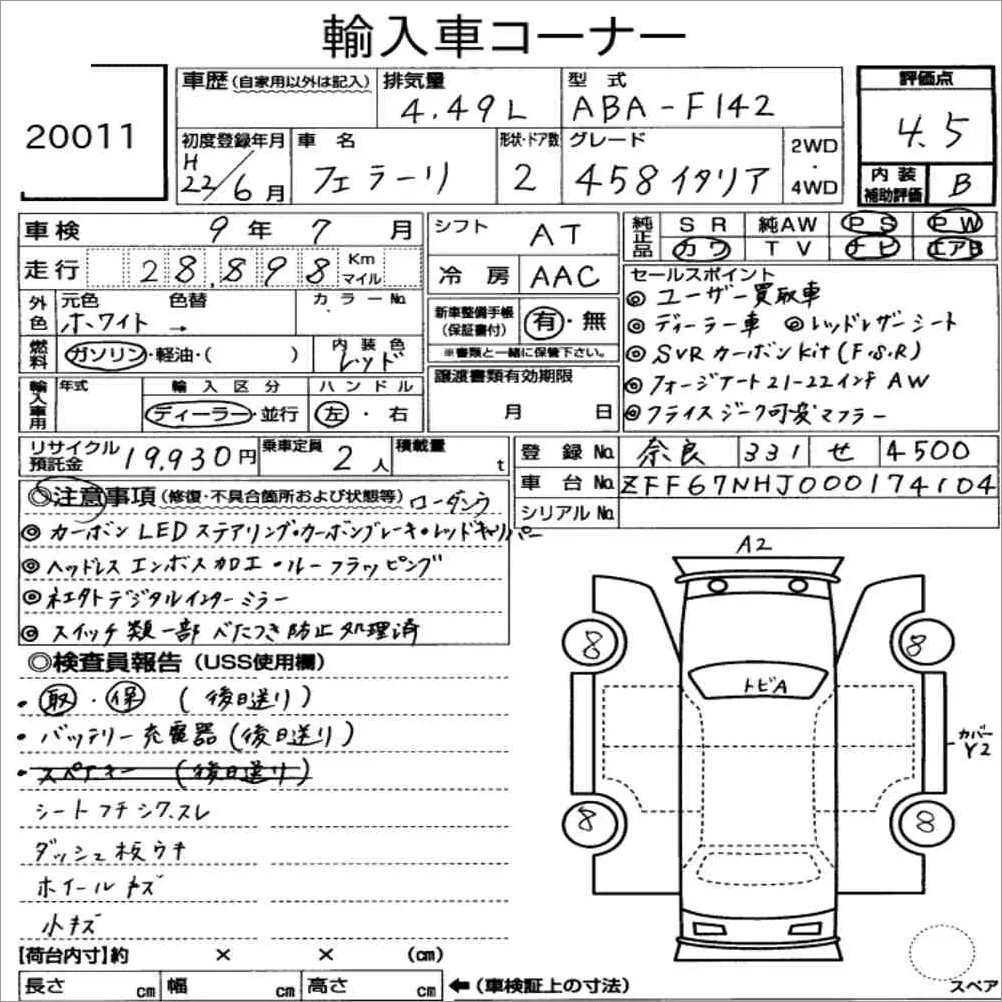 輸入車コーナー
20011
車歴(自家用以外は記入)
排気量
4.49L
型式
ABA-F142
評価点
4.5
初度登録年月
H
22/6月
車名
フェラーリ
形状・ドア数
2
グレード
458イタリア
2WD
・
4WD
内装
補助評価
B
車検 9年7月
走行 28,898 Km
マイル
シフト AT
冷房 AAC
純正品
SR 純AW PS PW
カワ TV ナビ エアB
外色
元色
ホワイト
色替
→
カラーNo.
新車整備手帳
(保証書付)
有・無
※書類と一緒に保管下さい。
燃料
ガソリン・軽油・( )
内装色
レッド
譲渡書類有効期限
月 日
輸入車用
年式
輸入区分
ディーラー・並行
ハンドル
左・右
セールスポイント
◎ユーザー買取車
◎ディーラー車 ◎レッドレザーシート
◎SVRカーボンKit(F.S.R)
◎フォージアート21-22インチAW
◎クライスジーク可変マフラー
リサイクル
預託金
19,930円
乗車定員
2人
積載量
t
登録No. 奈良 331 せ 4500
車台No. ZFF67NHJ000174104
シリアルNo.
◎注意事項(修復・不具合箇所および状態等)
◎カーボンLEDステアリング・カーボンブレーキ・レッドキャリパー
◎ヘッドレスエンボス加工・ルーフラッピング
◎ネエタトデジタルインナーミラー
◎スイッチ類一部べたつき防止処理済
◎検査員報告(USS使用欄)
・取・保(後日送り)
・バッテリー充電器(後日送り)
・スペアキー(後日送り)
シートフチシワ、スレ
ダッシュ板ウキ
ホイールキズ
小キズ
A2
8
8
トビA
カバー
Y2
8
8
スペア
【荷台内寸】約 × × (cm)
長さ cm 幅 cm 高さ cm ←(車検証上の寸法)